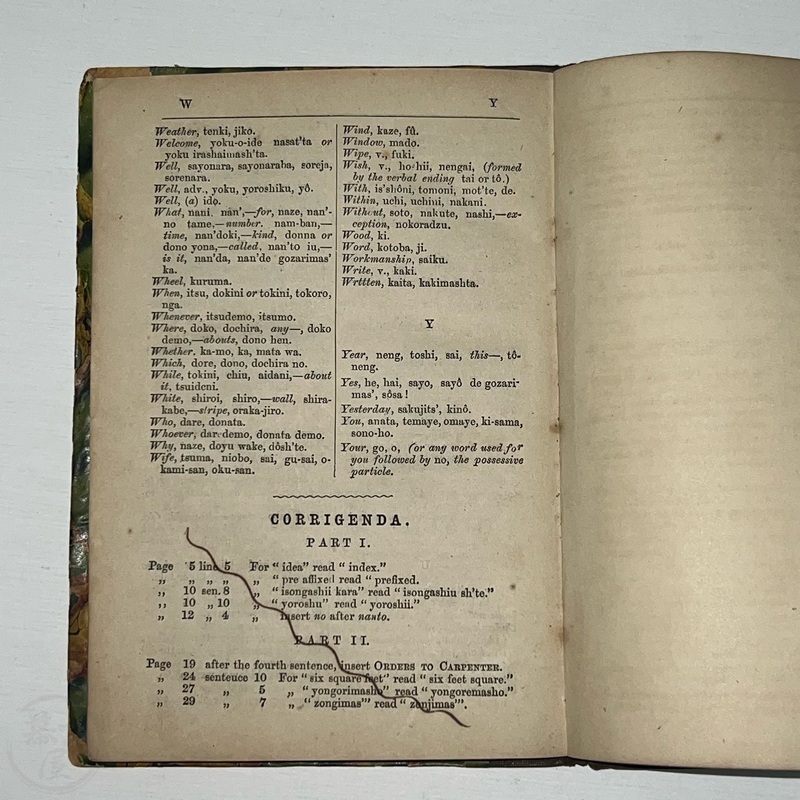 W
Y
Weather, tenki, jiko.
Welcome, yoku-o-ide nasat'ta or
yoku irashaimash'ta.
Well, sayonara, sayonaraba, soreja,
sorenara.
Well, adv., yoku, yoroshiku, yô.
Well, (a) ido.
What, nani, nan',—for, naze, nan'-
no tame,—number. nam-ban,—
time, nan'doki,—kind, donna or
dono yona,—called, nan'to iu,—
is it, nan'da, nan'de gozarimas'
ka.
Wheel, kuruma.
When, itsu, dokini or tokini, tokoro,
nga.
Whenever, itsudemo, itsumo.
Where, doko, dochira, any—, doko
demo,—abouts, dono hen.
Whether. ka-mo, ka, mata wa.
Which, dore, dono, dochira no.
While, tokini, chiu, aidani,—about
it, tsuideni.
White, shiroi, shiro,—wall, shira-
kabe,—stripe, oraka-jiro.
Who, dare, donata.
Whoever, dare demo, donata demo.
Why, naze, doyu wake, dôsh'te.
Wife, tsuma, niobo, sai, gu-sai, o-
kami-san, oku-san.
Wind, kaze, fû.
Window, mado.
Wipe, v., fuki.
Wish, v., hoshii, nengai, (formed
by the verbal ending tai or tô.)
With, is'shôni, tomoni, mot'te, de.
Within, uchi, uchini, nakani.
Without, soto, nakute, nashi,—ex-
ception, nokoradzu.
Wood, ki.
Word, kotoba, ji.
Workmanship, saiku.
Write, v., kaki.
Wrttten, kaita, kakimashta.
Y
Year, neng, toshi, sai, this—, tô-
neng.
Yes, he, hai, sayo, sayô de gozari-
mas', sôsa!
Yesterday, sakujits', kinô.
You, anata, temaye, omaye, ki-sama,
sono-ho.
Your, go, o, (or any word used for
you followed by no, the possessive
particle.
CORRIGENDA.
PART I.
Page 5 line 5 For "idea" read "index."
„ „ „ „ „ "pre affixed read "prefixed.
„ 10 sen. 8 „ "isongashii kara" read "isongashiu sh'te."
„ 10 „ 10 „ "yoroshu" read "yoroshii."
„ 12 „ 4 „ insert no after nanto.
PART II.
Page 19 after the fourth sentence, insert ORDERS TO CARPENTER.
„ 24 sentence 10 For "six square feet" read "six feet square."
„ 27 „ 5 „ "yongorimasho" read "yongoremasho."
„ 29 „ 7 „ "zongimas'" read "zonjimas'".